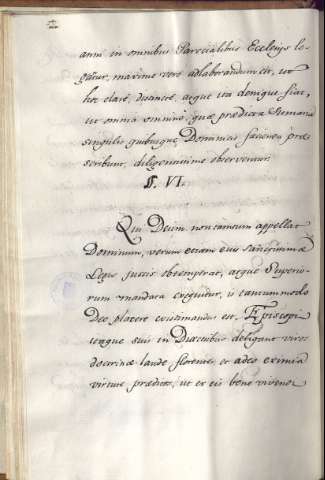 anni in omnibus Parœcialibus Ecclesijs le-
gatur, maxime vero adlaborandum est, ut
hæc clare, distincte, atque ita denique fiat,
ut omnia omnino, quæ prædicta Romana
singulis quibusque Dominicis facienda præ-
scribunt, diligentissime observentur.
§. VI.
Qui Deum non tantum appellat
Dominum, verum etiam ejus sanctissimæ
Legis jussis obtemperat, atque Superio-
rum mandata exequitur, is tantummodo
Deo placere existimandus est. Episcopi
itaque suis in Diœcesibus deligant viros
doctrinæ laude florentes, et adeo eximia
virtute præditos, ut ex eis bene vivendi